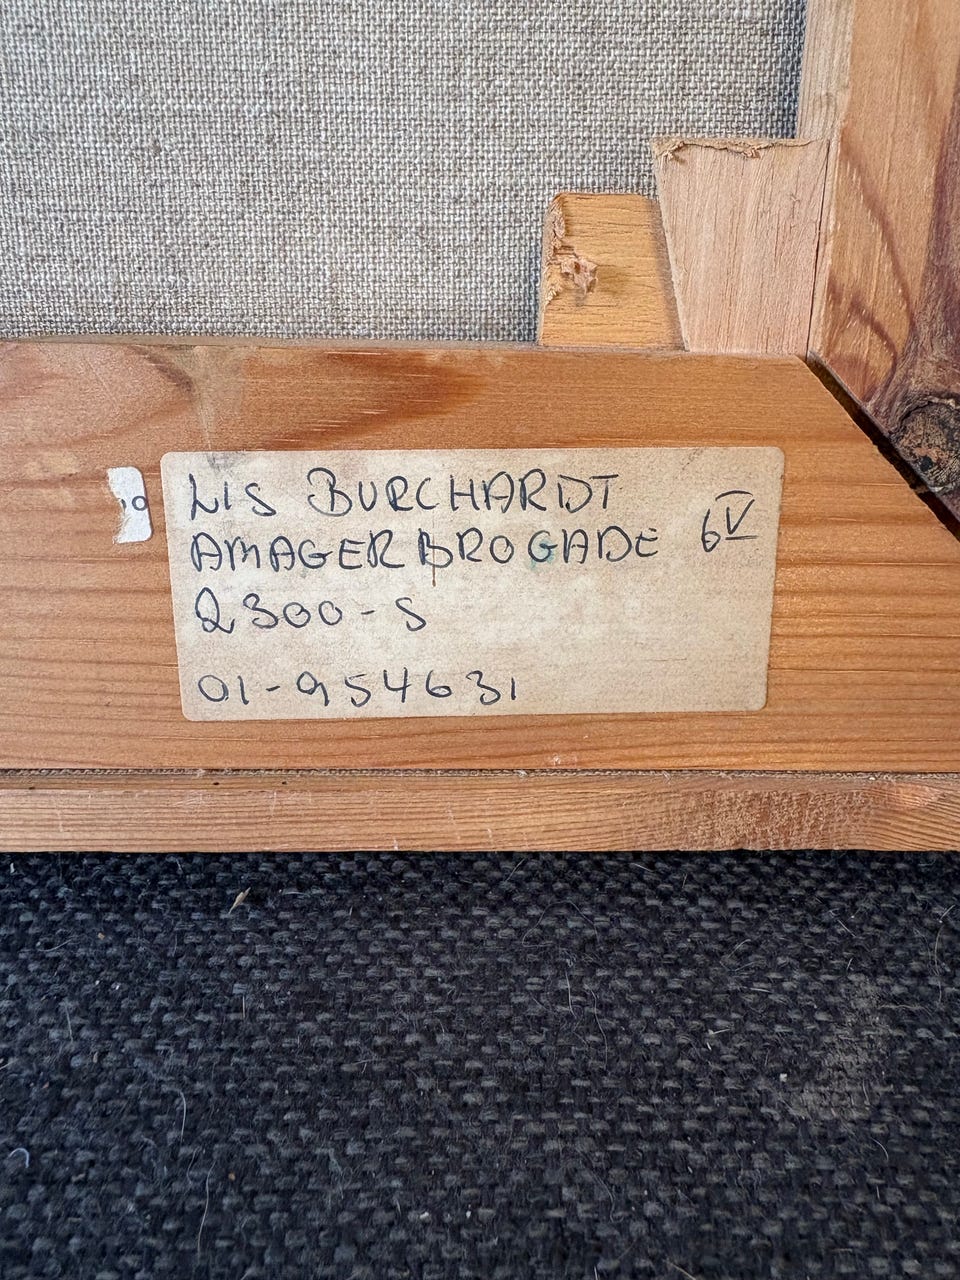 LIS BURCHARDT
AMAGERBROGADE 6 V
2300-S
01-954631